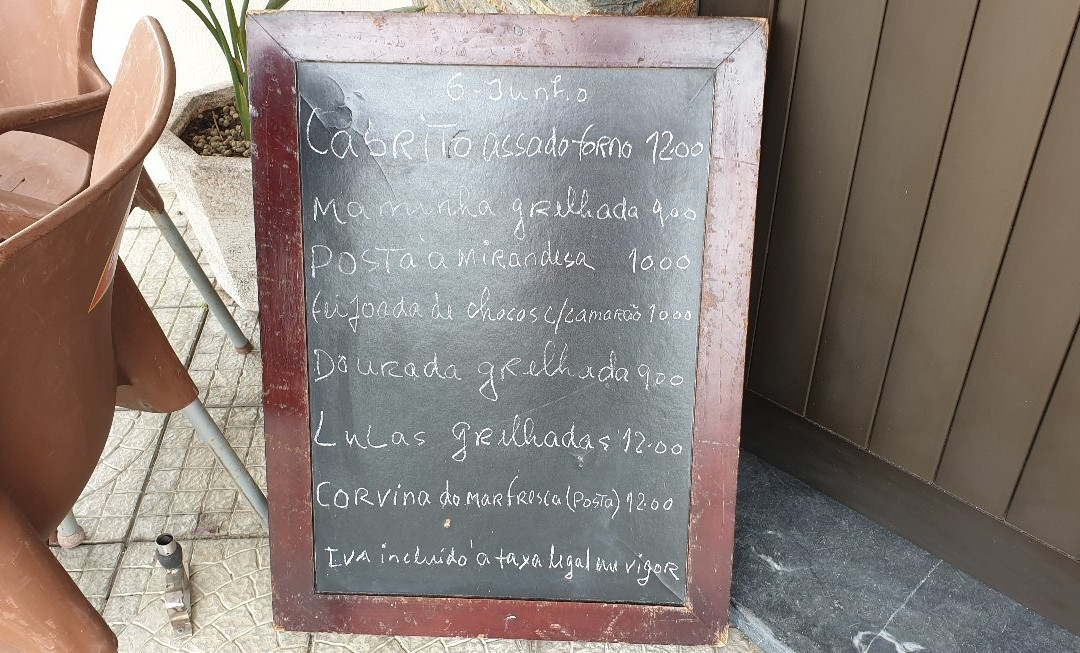 6-Junho
Cabrito assado forno 12.00
Maminha grelhada 9,00
Posta à mirandesa 10.00
feijoada de chocos c/camarão 10.00
Dourada grelhada 9,00
Lulas grelhadas 12.00
Corvina do mar fresca (Posta) 12.00
IVA incluído à taxa legal em vigor